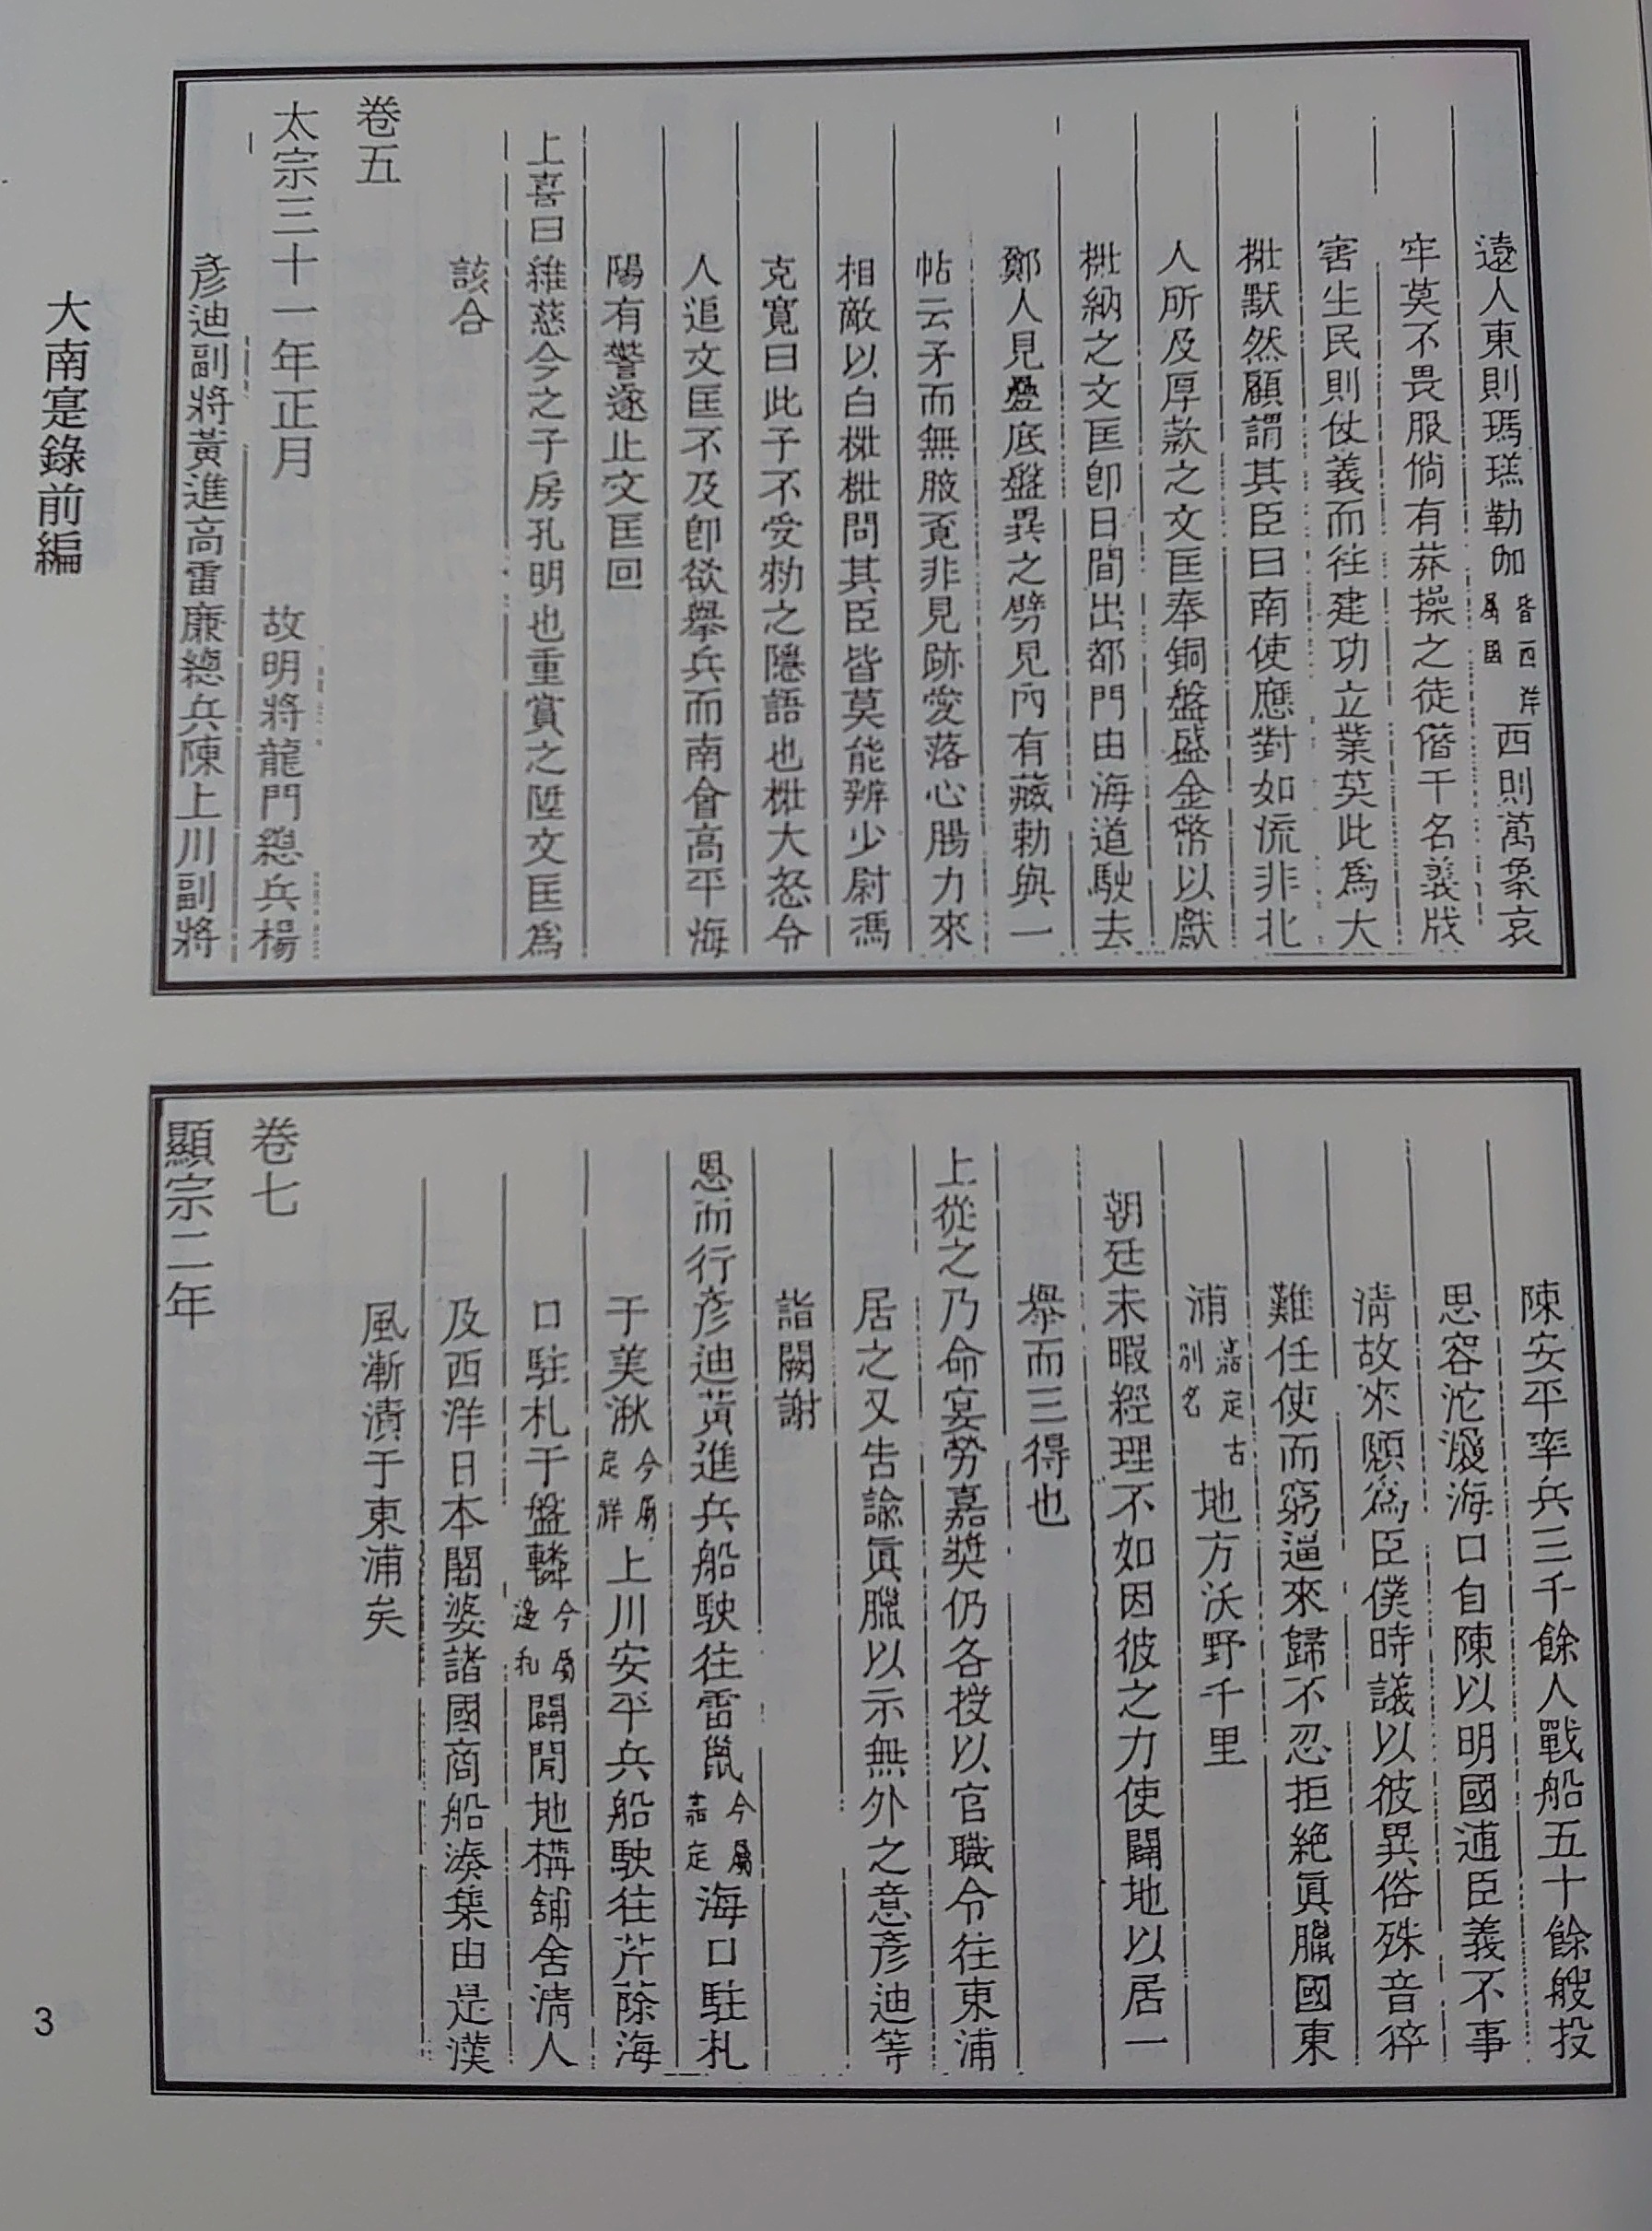 遠人東則瑪瑹勒伽皆西洋屬國西則萬象哀
牢莫不畏服倘有莽操之徒僭干名義戕
害生民則仗義而往建功立業莫此爲大
𣖼默然顧謂其臣曰南使應對如流非北
人所及厚款之文匡奉銅盤盛金幣以獻
𣖼納之文匡卽日間出都門由海道駛去
鄭人見疊底盤異之劈見內有藏勅與一
帖云矛而無腋覓非見跡愛落心腸力來
相敵以白𣖼𣖼問其臣皆莫能辨少尉馮
克寬曰此子不受勑之隱語也𣖼大怒令
人追文匡不及卽欲擧兵而南會高平海
陽有警遂止文匡回
上喜曰維慈今之子房孔明也重賞之陞文匡爲
該合
卷五
太宗三十一年正月 故明將龍門總兵楊
彥迪副將黃進高雷廉總兵陳上川副將
陳安平率兵三千餘人戰船五十餘艘投
思容沱㶞海口自陳以明國逋臣義不事
淸故來願爲臣僕時議以彼異俗殊音猝
難任使而窮逼來歸不忍拒絕眞臘國東
浦嘉定古別名地方沃野千里
朝廷未暇經理不如因彼之力使闢地以居一
擧而三得也
上從之乃命宴勞嘉奬仍各授以官職令往東浦
居之又告諭眞臘以示無外之意彥迪等
詣闕謝
恩而行彥迪黃進兵船駛往雷巤今屬嘉定海口駐札
于美湫今屬定祥上川安平兵船駛往芹蒢海
口駐札于盤轔今屬邊和闢閒地構舖舍淸人
及西洋日本闍婆諸國商船湊集由是漢
風漸漬于東浦矣
卷七
顯宗二年
大南寔錄前編
3